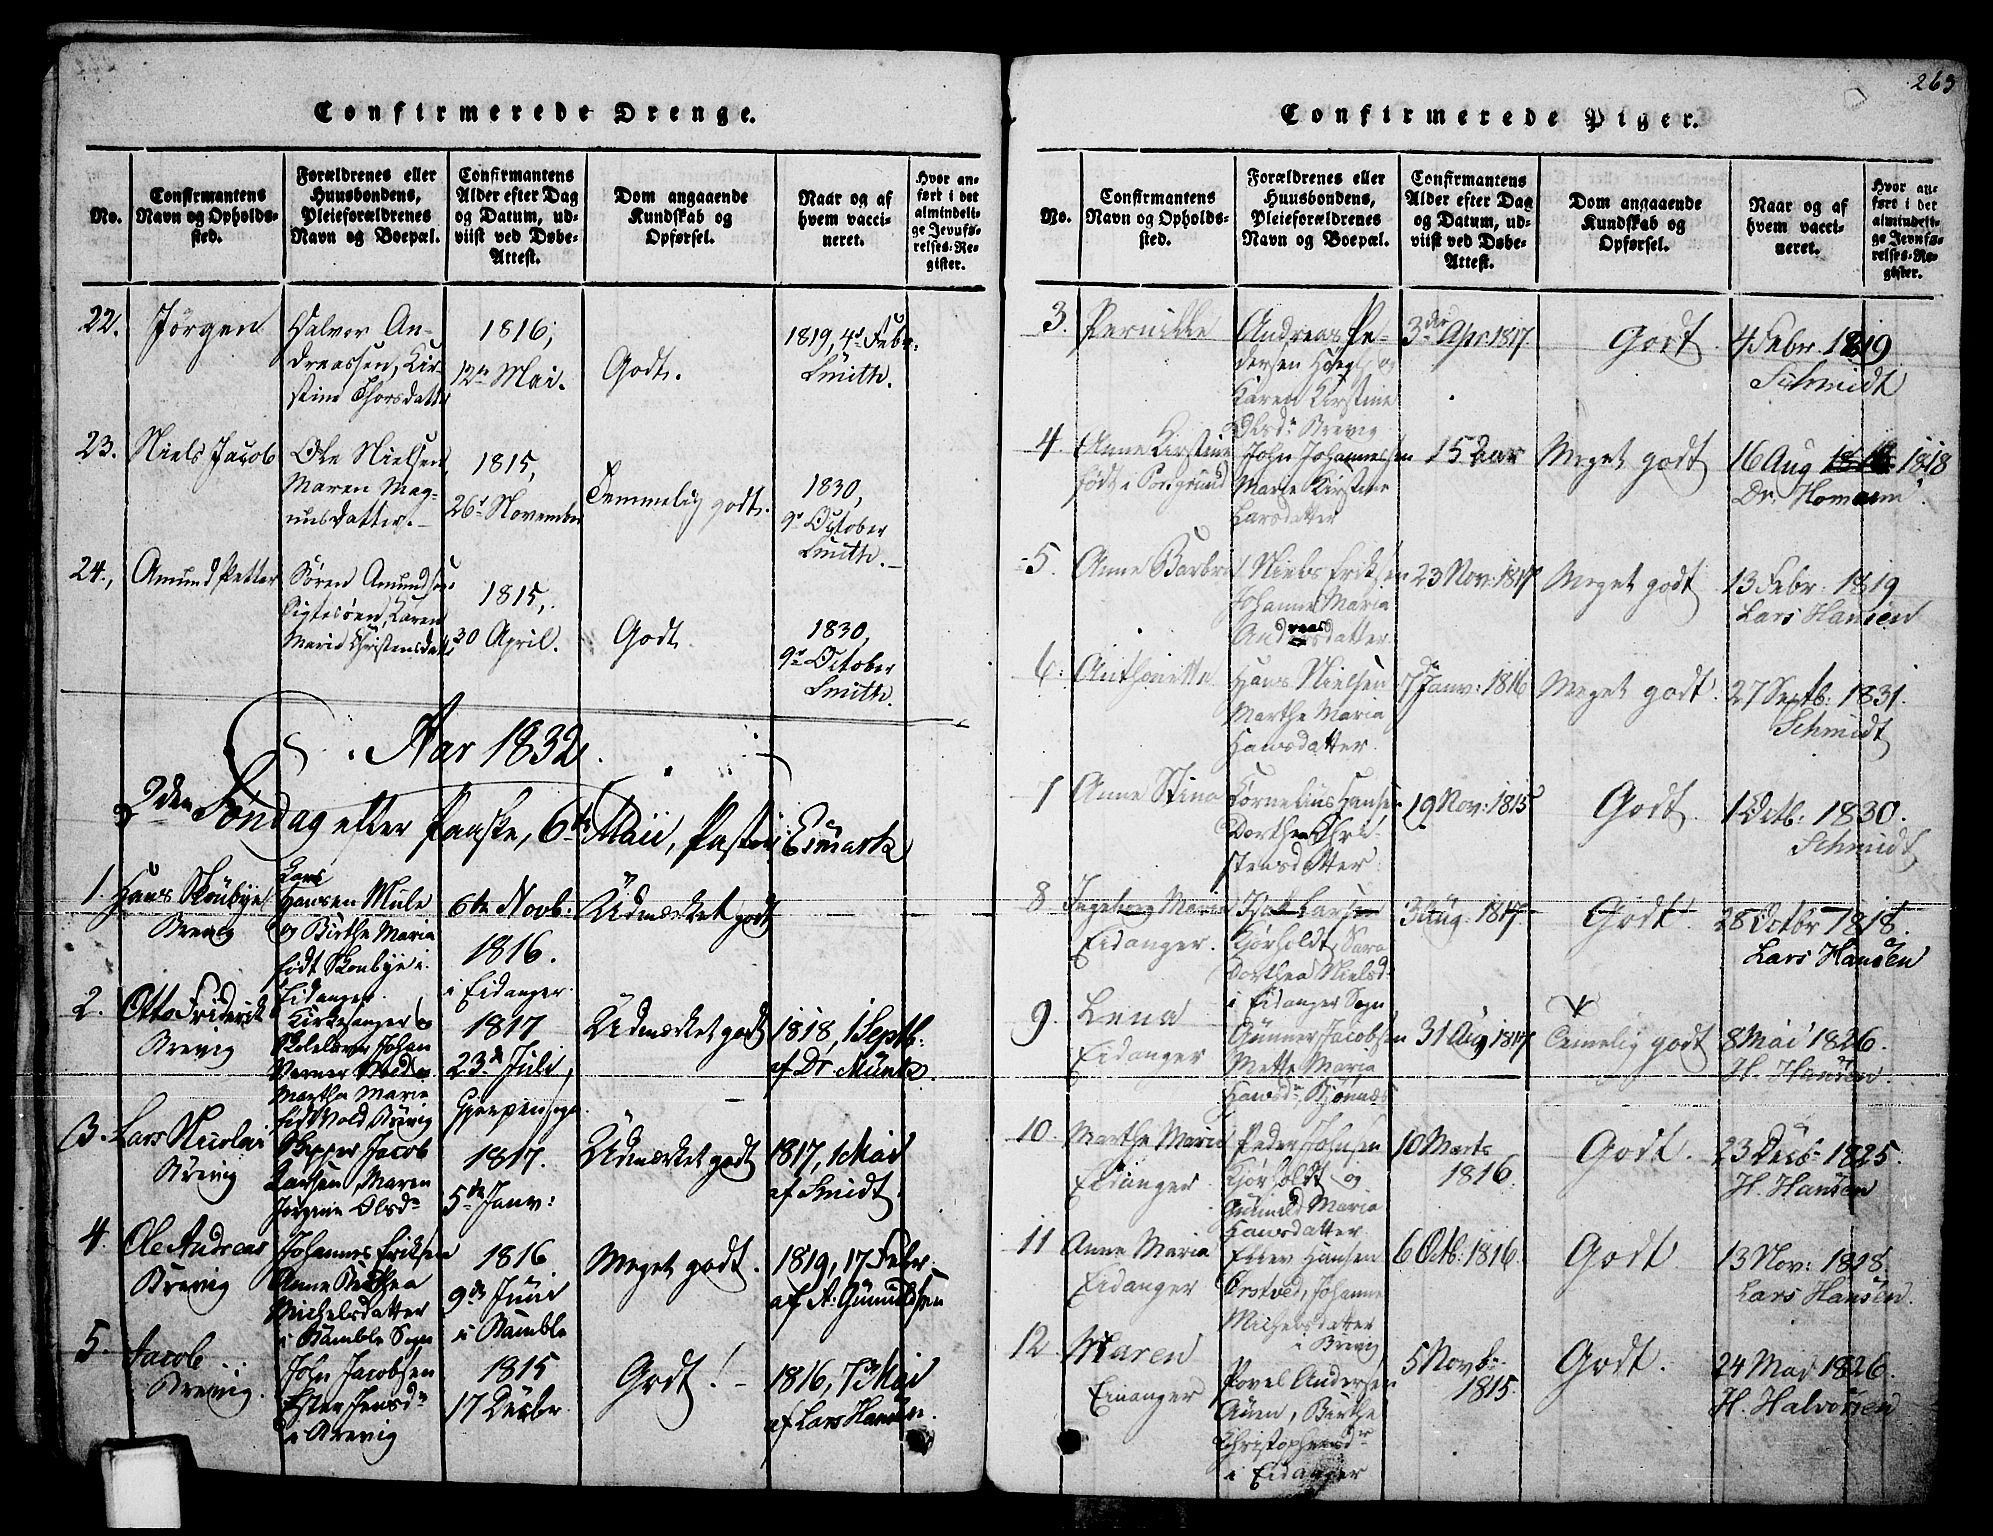 Confirmerede Drenge.
No.
Confirmantens
Navn og Opholds-
sted.
Forældrenes eller
Huusbondens,
Pleieforældrenes
Navn og Boepæl.
Confirmantens
Alder efter Dag
og Datum, ud-
viist ved Døbe-
Attest.
Dom angaaende
Kundskab og
Opførsel.
Naar og af
hvem vacci-
neret.
Hvor an-
ført i det
almindeli-
ge Jevnfø-
relses-Re-
gister.
22.
Jørgen
Halvor An-
dreassen, Kir-
stine Thorsdatter
1816,
12te Mai.
Godt.
1819, 4de Febr.
Smith.
23.
Niels Jacob
Ole Nielsen
Maren Mag-
nusdatter.
1815,
26de November
Temmelig godt.
1830,
9de October
Smith.
24.,
Amund Petter
Sören Amundsen
Maria Christensdatter
1815,
30 April.
Godt.
1830,
9de October
Smith.
Aar 1832.
2den Söndag efter Paaske, 6te Maii, Pastor Esmark
1.
Hans Skoubye
Brevig
Lars
Hansen Mule
og Birthe Maria
født Skoubye i
Eidanger.
6te Novb:
1816.
i Eidanger
Udmærket godt
2.
Otto Friderik
Brevig
Kirkesanger og
Skolelærer Johan
Werner Wold og
Martha Maria
Wold, Brevig
1817
23de Juli,
Udmærket godt
1818, 1 Septb.
af Dr. Munk.
3.
Lars Nicolai
Brevig
Skipper Jacob
Larsen, Maren
Jørgine Olsdr
1817.
5te Janv:
Udmærket godt
1817, 1 Mai
af Smidt.
4.
Ole Andreas
Brevig
Johannes Eriksen
Anne Berthea
Michelsdatter
i Bamble Sogn
1816
9de Juni
i Bamble
Meget godt.
1819, 17 Febr.
af A. Gunuldsen
5.
Jacob
Brevig.
John Jacobsen
Ester Jensdr
i Brevig
1815
17 Decbr.
Godt! -
af Lars Hansen.
263
Confirmerede Piger.
No.
Confirmantens
Navn og Opholds-
sted.
Forældrenes eller
Huusbondens,
Pleieforældrenes
Navn og Boepæl.
Confirmantens
Alder efter Dag
og Datum, ud-
viist ved Døbe-
Attest.
Dom angaaende
Kundskab og
Opførsel.
Naar og af
hvem vacci-
neret.
Hvor an-
ført i det
almindeli-
ge Jevnfø-
relses-Re-
gister.
3.
Pernille
Andreas Pe-
dersen Høegh og
Karen Kirstine
Olsdr Brevig
3die Apr: 1817
Godt.
4 Febr 1819
Schmidt
4.
Anne Kirstine
født i Porsgrund
John Johannessen
Marie Kirstine
Larsdatter
15 Aar
Meget godt
16 Aug 1818
Dr. Homann.
5.
Anne Barbra
Niels Eriksen
Johanne Maria
Andreasdatter
23 Nov: 1817
Meget godt
13 Febr: 1819
Lars Hansen
6.
Anthonette
Hans Nielsen
Marthe Maria
Hansdatter.
7de Janv: 1816
Meget godt.
27 Septb: 1831.
Schmidt
7
Anne Stina
Cornelius Hansen
Dorthea Chri-
stensdatter
19 Nov: 1815
Godt.
1 Octb: 1830.
Schmidt
8
Ingeborg Maria
Eidanger.
Isak Larsen
Kjørholdt, Sara
Dorthea Nielsd.
i Eidanger Sogn
3 Aug: 1817.
Godt.
28 Octbr 1818.
Lars Hansen
9.
Lena
Eidanger
Gunner Jacobsen
Mette Maria
Hansdr, Bjønnes
31 Aug 1817
Temelig godt
8 Mai 1826.
H. Hansen.
10.
Marthe Maria
Eidanger
Peder Johnsen
Kjørholdt og
Gunild Maria
Hansdatter
10 Marts
1816.
Godt.
23 Decb: 1825.
H. Hansen
11
Anne Maria
Eidanger
Ellev Hansen
Ørstved, Johanne
Michelsdatter
i Brevig
6 Octb: 1816.
Godt
13 Nov: 1818.
Lars Hansen.
12.
Maren
Eidanger
Povel Andersen
Auen, Birthe
Christophersdr
i Eidanger
5 Novbr
1815.
Godt.
24 Mai 1826.
H. Halvorsen